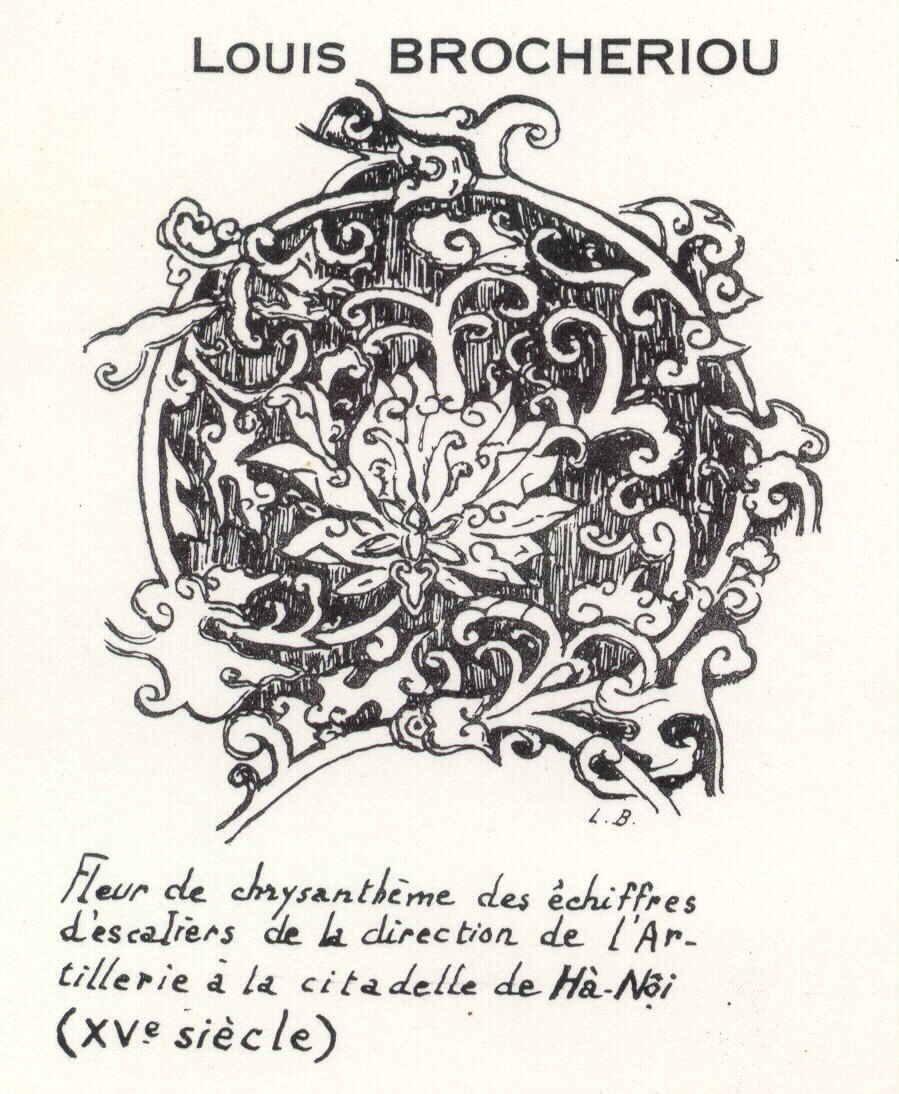 Louis BROCHERIOU
L. B.
Fleur de chrysanthème des échiffres
d'escaliers de la direction de l'Ar-
tillerie à la citadelle de Hà-Nôi
(XVe siècle)